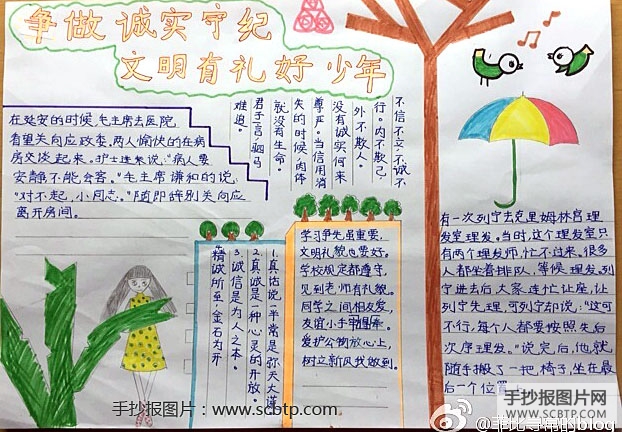 争做诚实守纪
文明有礼好少年
在延安的时候,毛主席去医院
看望关向应政委。两人愉快的在病
房交谈起来。护士进来说:“病人要
安静,不能会客。”毛主席谦和的说:
“对不起,小同志。”随即辞别关向应
离开房间。
不信不立,不诚不
行。内不欺己,
外不欺人。
没有诚实何来
尊严。当信用消
失的时候,肉体
就没有生命。
君子一言,驷马
难追。
1.真话说一半常是弥天大谎
2.真诚是一种心灵的开放
3.诚信是为人之本。
4.精诚所至,金石为开
学习争先虽重要,
文明礼貌也要好。
学校规定都遵守,
见到老师有礼貌。
同学之间相友爱,
友谊小手
爱护公物放心上,
树立新风我做到。
有一次列宁去克里姆林宫理
发室理发。当时,这个理发室只
有两个理发师,忙不过来。很多
人都坐着排队,等候理发。列
宁进去后大家连忙让座,让
列宁先理,可列宁却说:“这可
不行,每个人都要按照先后
次序理发。”说完后,他就
随手搬了一把椅子,坐在最
后一个位置上
手抄报图片:www.scbtp.com
手抄报图片网
www.scbtp.com